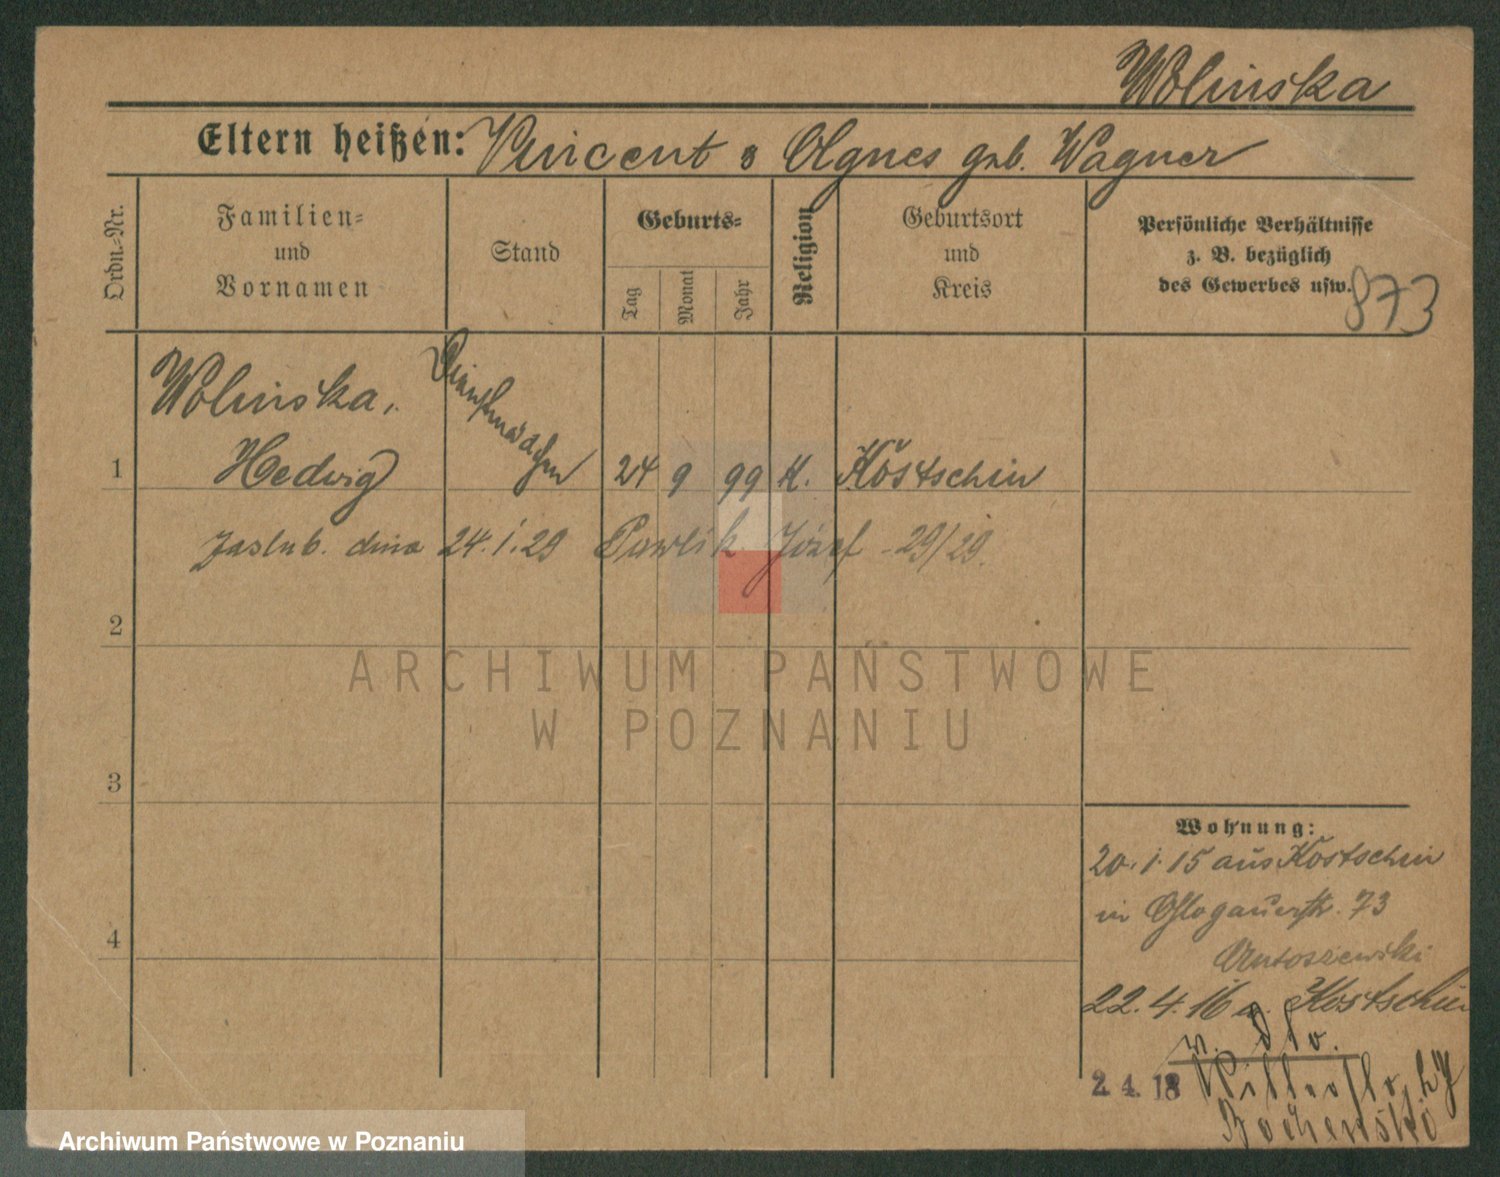 Wolinska
Eltern heißen: Vincent & Agnes geb. Wagner
Ordn.-Nr.
Familien-
und
Vornamen
Stand
Geburts-
Tag
Monat
Jahr
Religion
Geburtsort
und
Kreis
Persönliche Verhältnisse
z. B. bezüglich
des Gewerbes usw.
873
Wolinska,
Dienstmädchen
1 Hedwig 24 9 99 K. Kostschin
zaślub. dnia 24.1.29 Pawlik Józef - 29/29.
2
3
4
Wohnung:
20.1.15 aus Kostschin
in Glogauerstr. 73
Antoszewski
22.4.16 a. Kostschin
v. dto.
2. 4. 18
ARCHIWUM PAŃSTWOWE
W POZNANIU
Archiwum Państwowe w Poznaniu